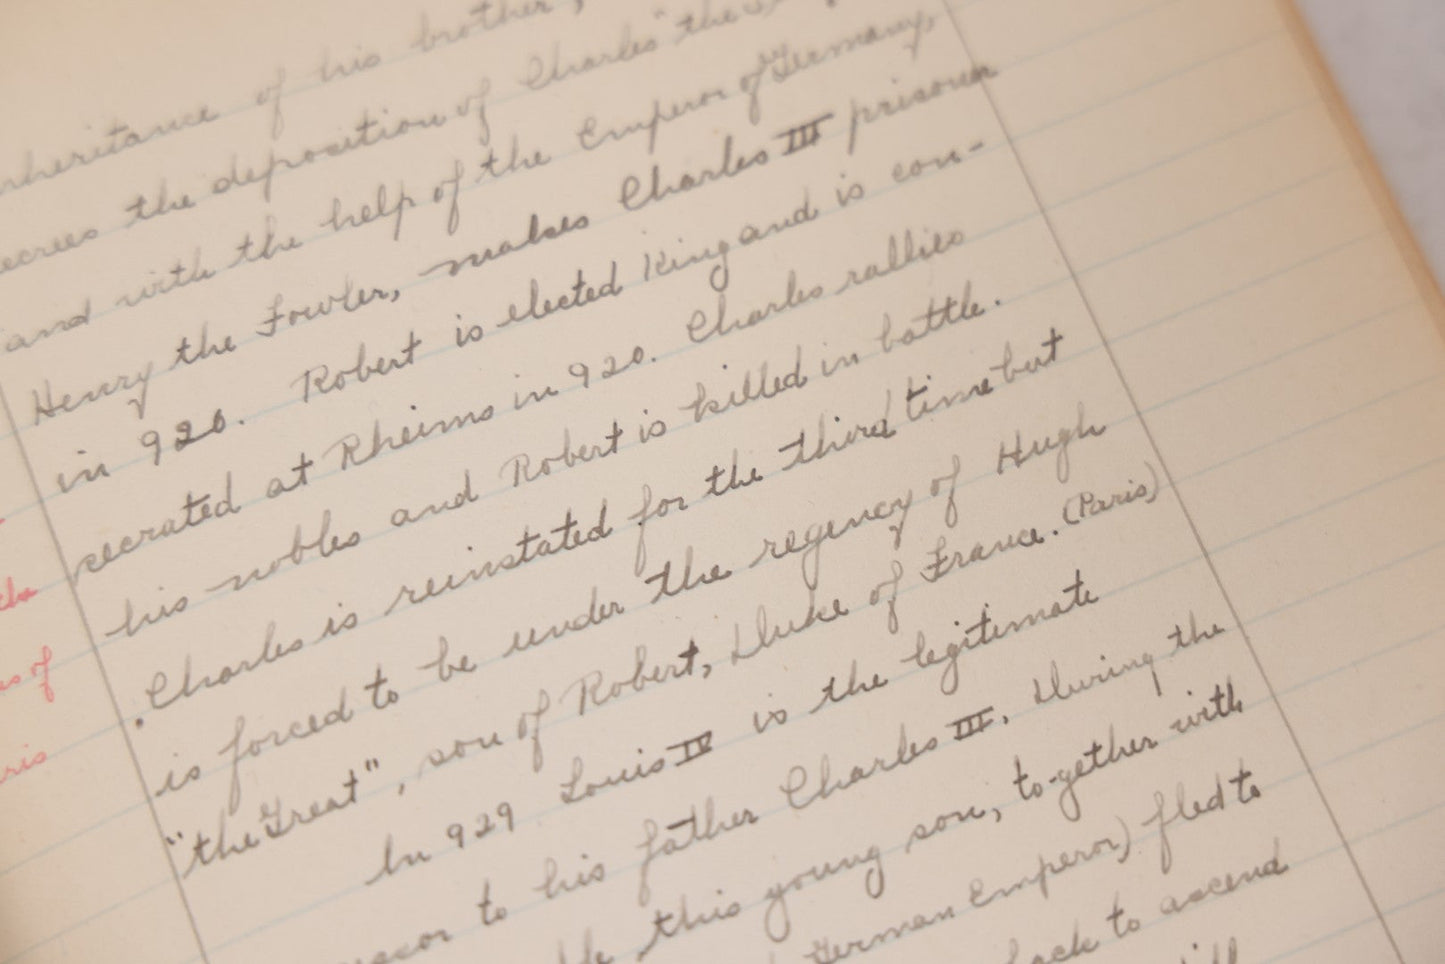 inheritance of his brother,
the deposition of Charles "the
and with the help of the Emperor of Germany,
Henry the Fowler, makes Charles III prisoner
in 920. Robert is elected King and is con-
secrated at Rheims in 920. Charles rallies
his nobles and Robert is killed in battle.
Charles is reinstated for the third time but
is forced to be under the regency of Hugh
"the Great", son of Robert, Duke of France. (Paris)
In 929 Louis IV is the legitimate
to his father Charles III. During the
this young son, to-gether with
German Emperor) fled to
back to ascend
of